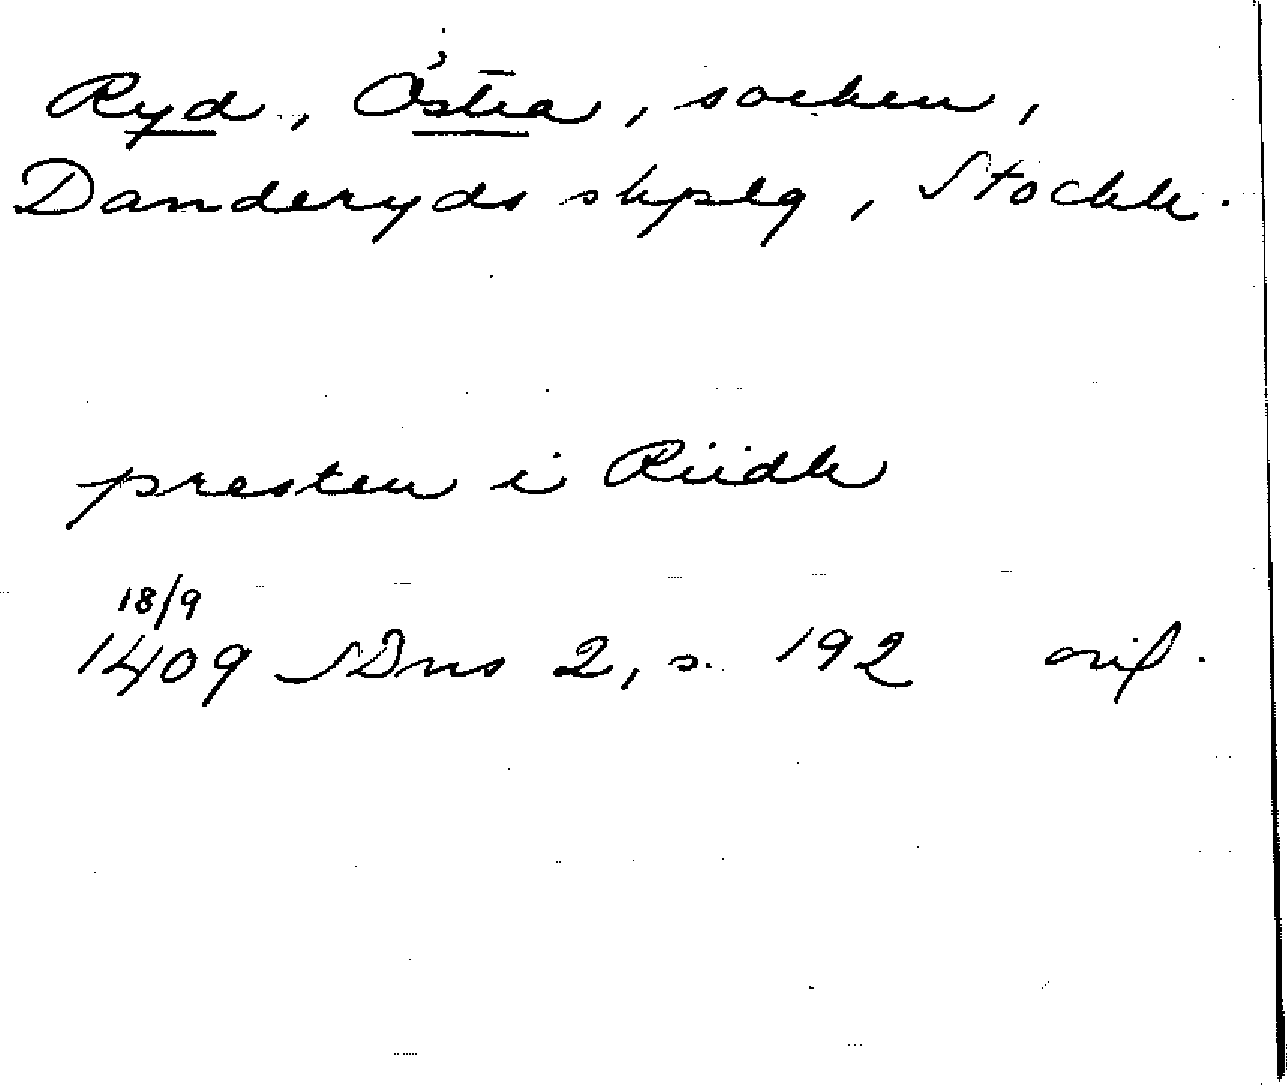 Ryd, Östra, socken,
Danderyds skplg, Stockh.
presten i Riidh
18/9
1409 SDns 2, s. 192 orig.